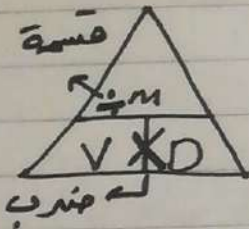 قسمة
÷ m
V × D
ضرب